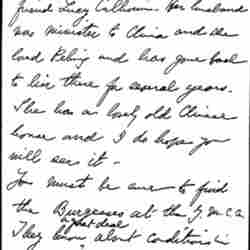 friend Lucy Calhoun. Her husband
was minister to China and she
loved Peking and has gone back
to live there for several years.
She has a lovely old Chinese
house and I do hope you
will see it -
You must be sure to find
the Burgesses at the Y.M.C.A.
a great deal
They know about conditions in